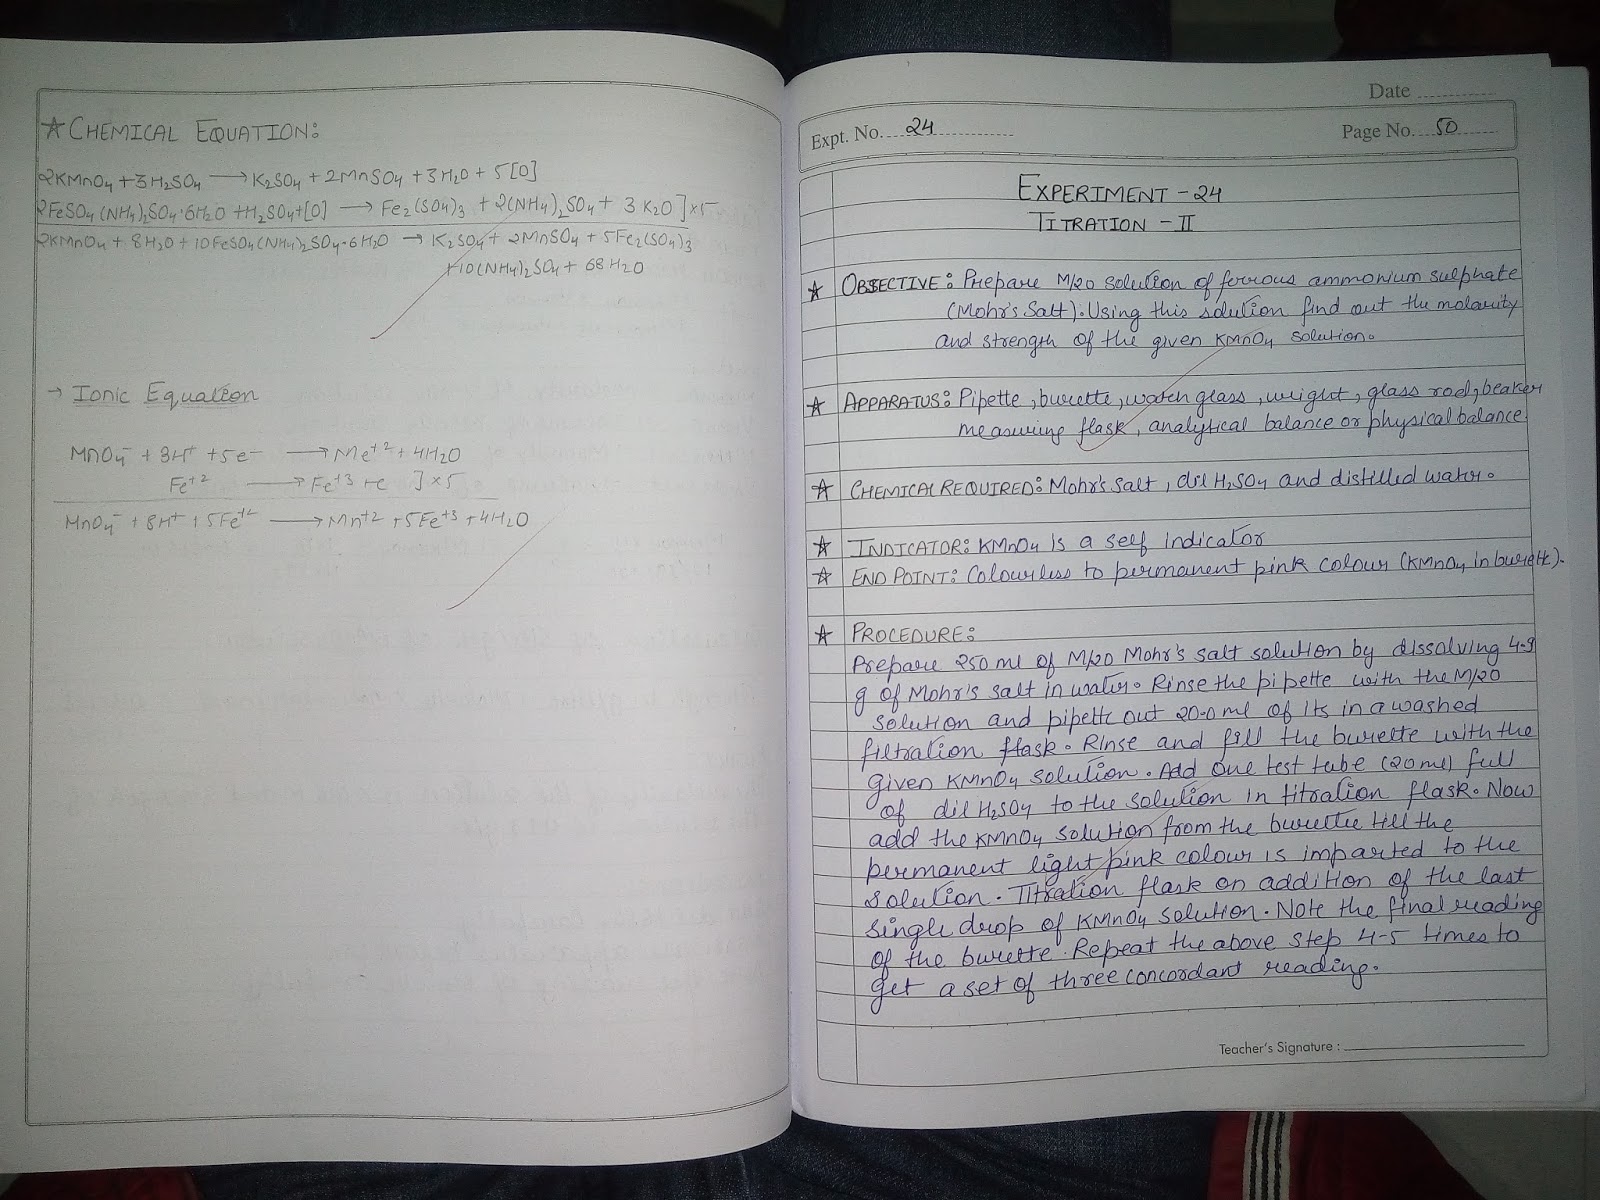 ☆ CHEMICAL EQUATION:
2KMnO4 + 3H2SO4 → K2SO4 + 2MnSO4 + 3H2O + 5[O]
2FeSO4(NH4)2SO4·6H2O + H2SO4 + [O] → Fe2(SO4)3 + 2(NH4)2SO4 + 3K2O ] × 5
2KMnO4 + 8H2O + 10FeSO4(NH4)2SO4·6H2O → K2SO4 + 2MnSO4 + 5Fe2(SO4)3
+10(NH4)2SO4 + 68H2O
→ Ionic Equation
MnO4⁻ + 3H⁺ + 5e⁻ → Me⁺² + 4H2O
Fe⁺² → Fe⁺³ + e ] × 5
MnO4⁻ + 8H⁺ + 5Fe⁺² → Mn⁺² + 5Fe⁺³ + 4H2O
Date
Expt. No. 24
Page No. 50
EXPERIMENT - 24
TITRATION - II
☆ OBJECTIVE: Prepare M/20 solution of ferrous ammonium sulphate
(Mohr's Salt). Using this solution find out the molarity
and strength of the given KMnO4 solution.
☆ APPARATUS: Pipette, burette, watch glass, wright, glass rod, beaker
measuring flask, analytical balance or physical balance
☆ CHEMICAL REQUIRED: Mohr's Salt, dil H2SO4 and distilled water.
☆ INDICATOR: KMnO4 is a self indicator
☆ END POINT: Colourless to permanent pink colour (KMnO4 in burette).
☆ PROCEDURE:
Prepare 250 ml of M/20 Mohr's salt solution by dissolving 4.9
g of Mohr's salt in water. Rinse the pipette with the M/20
solution and pipette out 20.0 ml of its in a washed
filtration flask. Rinse and fill the burette with the
given KMnO4 solution. Add one test tube (20 ml) full
of dil H2SO4 to the solution in titration flask. Now
add the KMnO4 solution from the burette till the
permanent light pink colour is imparted to the
solution. Titration flask on addition of the last
single drop of KMnO4 solution. Note the final reading
of the burette. Repeat the above step 4-5 times to
get a set of three concordant reading.
Teacher's Signature :